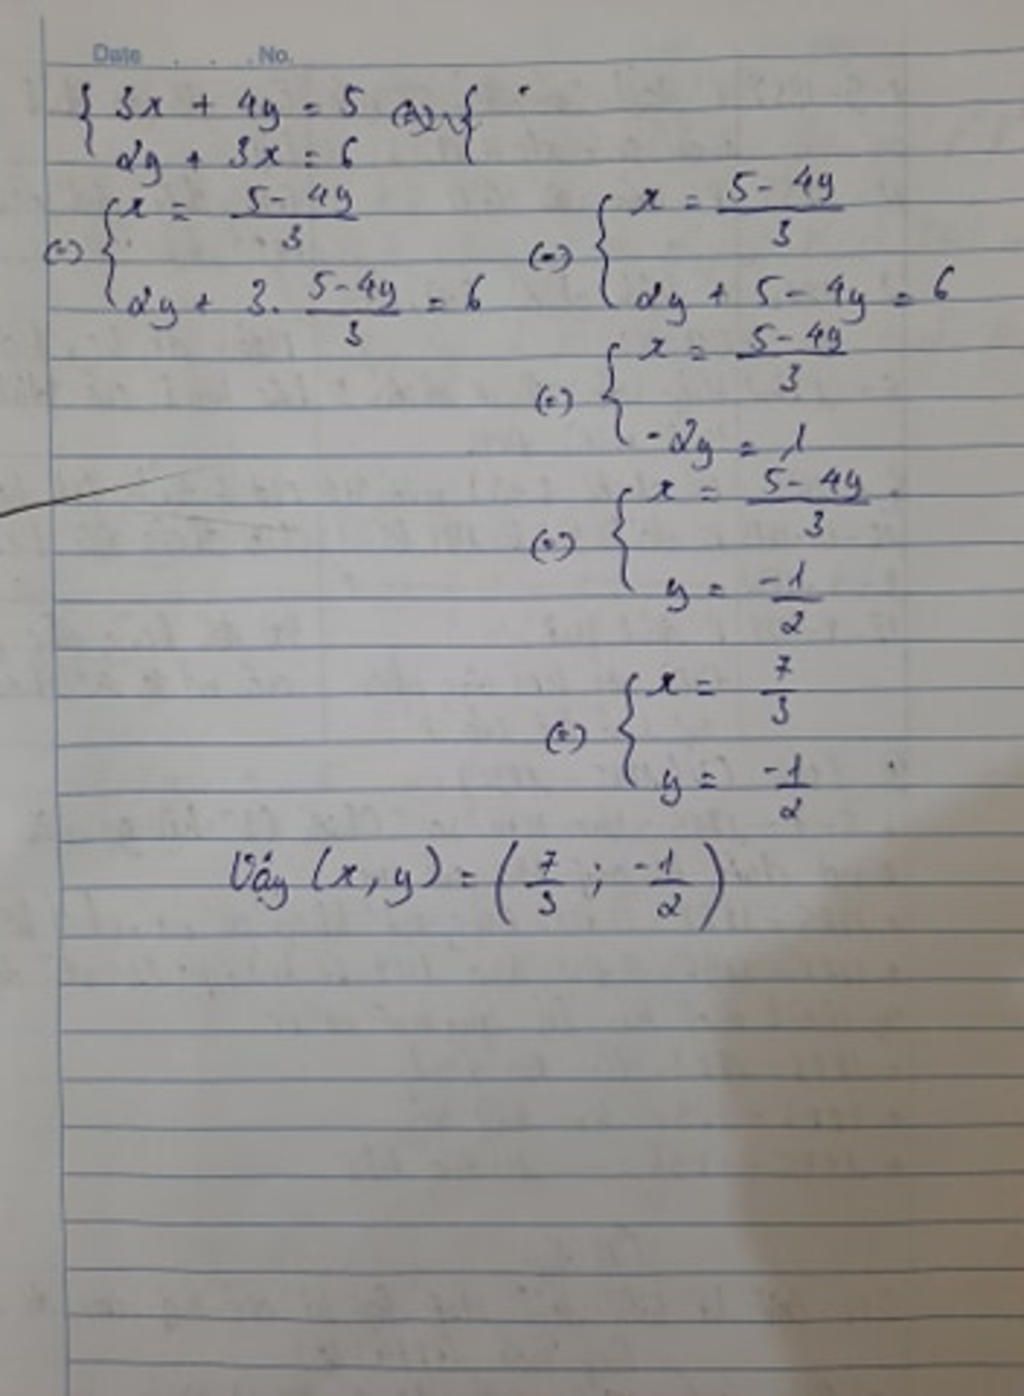 Date . . . No.
{ 3x + 4y = 5 (=) {
2y + 3x = 6
(=) { x = (5 - 4y)/3
2y + 3. (5 - 4y)/3 = 6
(=) { x = (5 - 4y)/3
2y + 5 - 4y = 6
(=) { x = (5 - 4y)/3
-2y = 1
(=) { x = (5 - 4y)/3
y = -1/2
(=) { x = 7/3
y = -1/2
Vậy (x, y) = (7/3 ; -1/2)